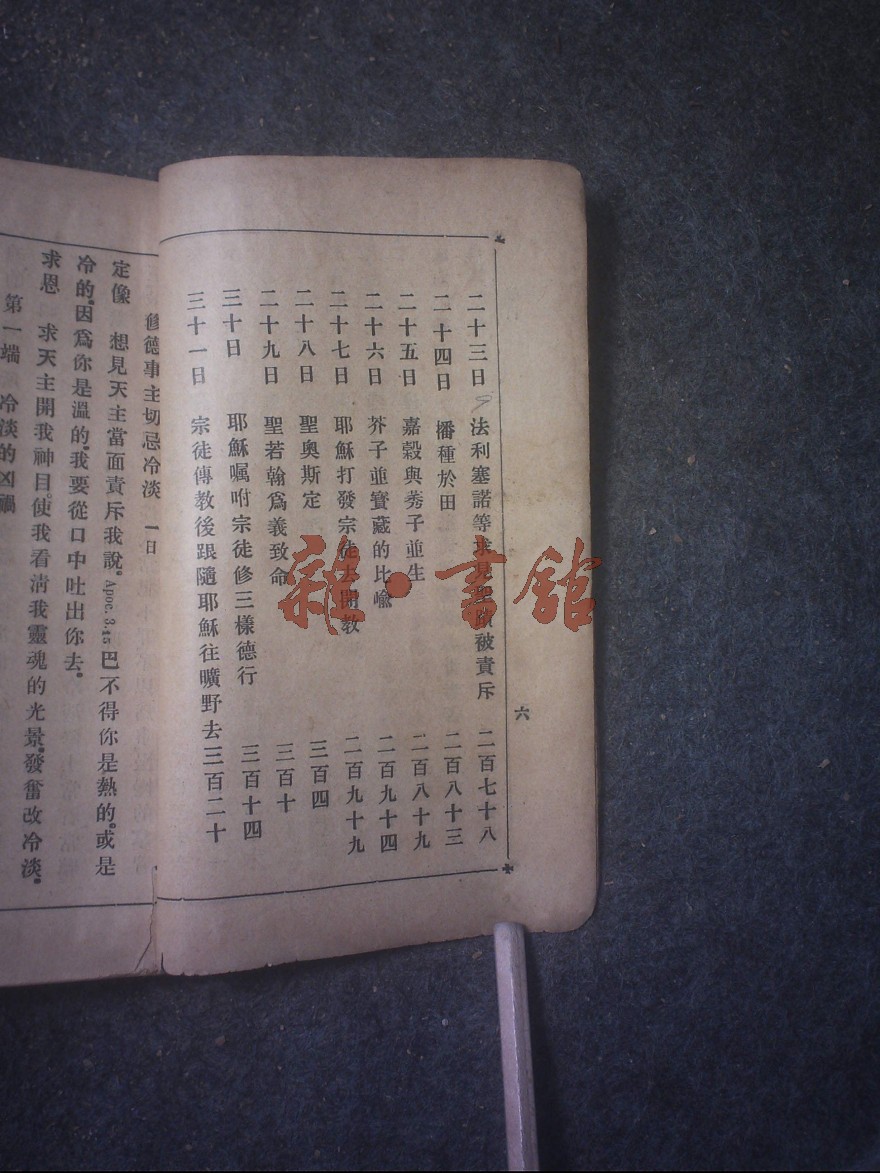 二十三日 法利塞諾等求見聖蹟被責斥 二百七十八
二十四日 播種於田 二百八十三
二十五日 嘉穀與莠子並生 二百八十九
二十六日 芥子並寶藏的比喻 二百九十四
二十七日 耶穌打發宗徒去開教 二百九十九
二十八日 聖奧斯定 三百四
二十九日 聖若翰爲義致命 三百十
三十日 耶穌囑咐宗徒修三樣德行 三百十四
三十一日 宗徒傳教後跟隨耶穌往曠野去 三百二十
六
修德事主切忌冷淡 一日
定像 想見天主當面責斥我說。Apoc. 3.15 巴不得你是熱的。或是
冷的。因爲你是溫的。我要從口中吐出你去。
求恩 求天主開我神目。使我看清我靈魂的光景。發奮改冷淡。
第一端 冷淡的凶禍
雜·書館